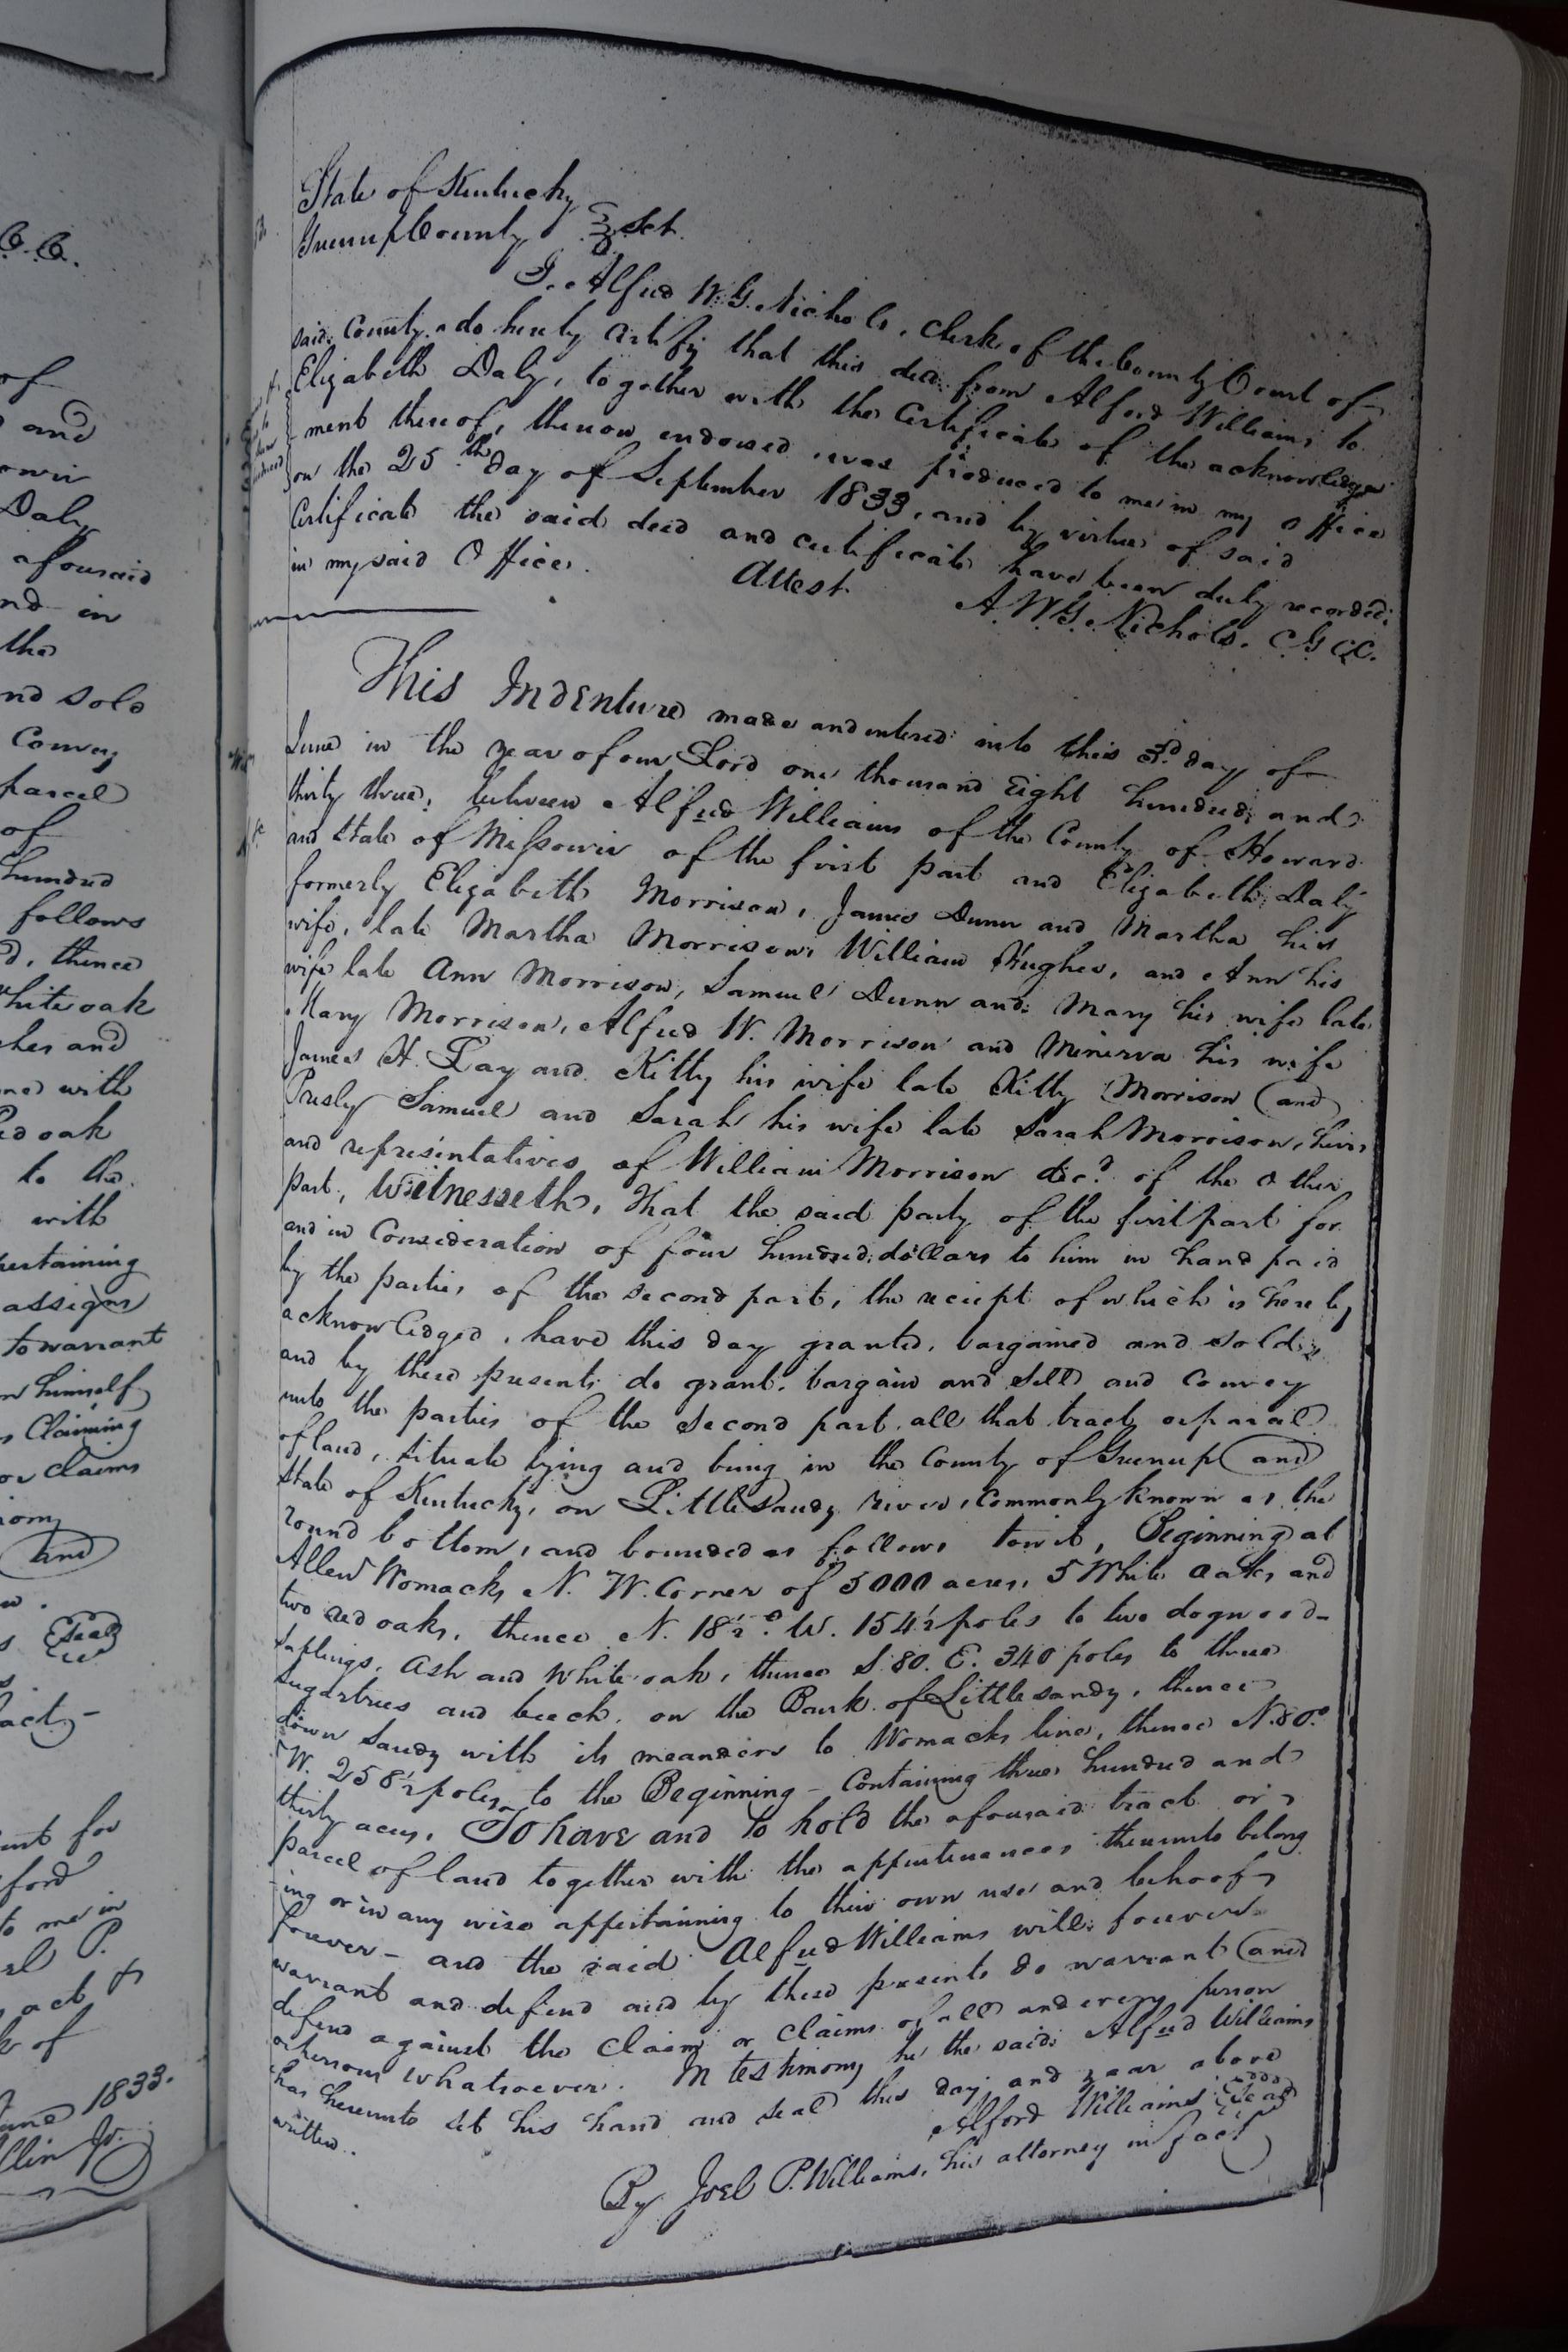 State of Kentucky
Greenup County Sct.
I. Alfred W. G. Nichols, Clerk of the County Court of
said County do hereby certify that this deed from Alford Williams to
Elizabeth Daly, together with the Certificate of the acknowledge
-ment thereof, thereon endorsed was produced to me in my office
on the 25.th day of September 1833, and by virtue of said
Certificate the said deed and certificate have been duly recorded
in my said Office.
Attest A. W. G. Nichols. C G C C.
This Indenture made and entered into this 3.d day of
June in the year of our Lord one thousand Eight hundred and
thirty three, between Alfred Williams of the County of Howard
and State of Missouri of the first part and Elizabeth Daly
formerly Elizabeth Morrison, James Dunn and Martha his
wife, late Martha Morrison, William Hughes, and Ann his
wife late Ann Morrison, Samuel Dunn and Mary his wife late
Mary Morrison, Alfred W. Morrison and Minerva his wife
James H. Lay and Kitty his wife late Kitty Morrison and
Presly Samuel and Sarah his wife late Sarah Morrison, heirs
and representatives of William Morrison dec.d of the other
part, Witnesseth, That the said party of the first part for
and in Consideration of four hundred dollars to him in hand paid
by the parties of the second part, the reciept of which is hereby
acknowledged, have this day granted, bargained and sold
and by these presents do grant, bargain and sell and Convey
unto the parties of the second part all that tract or parcel
of land, situate lying and being in the County of Greenup and
State of Kentucky, on Little Sandy river, commonly known as the
round bottom, and bounded as follows towit, Beginning at
Allen Womacks N. W. Corner of 5000 acres, 5 White oaks and
two red oaks, thence N. 18½° W. 154½ poles to two dogwood-
saplings, Ash and White oak, thence S. 80. E. 340 poles to three
Sugartrees and beech, on the Bank of Little sandy, thence
down Sandy with its meanders to Womacks line, thence N. 80.°
W. 258½ poles to the Beginning - Containing three hundred and
thirty acres, To have and to hold the aforesaid tract or
parcel of land together with the appurtenances thereunto belong
-ing or in any wise appertaining to their own use and behoof
forever - and the said Alfred Williams will forever
warrant and defend and by these presents do warrant and
defend against the Claim or Claims of all and every person
or persons whatsoever. In testimony he the said Alfred Williams
has hereunto set his hand and seal this day and year above
written.
Alford Williams Seal
By Joel P. Williams, his attorney in fact
C. C.
of
and
Daly
aforesaid
nd in
the
nd sold
Convey
parcel
of
hundred
follows
d, thence
White oak
ches and
with
Red oak
to the
with
pertaining
assigns
to warrant
himself
Claiming
or claims
and
Seal
for
to me in
P.
act &
of
June 1833.